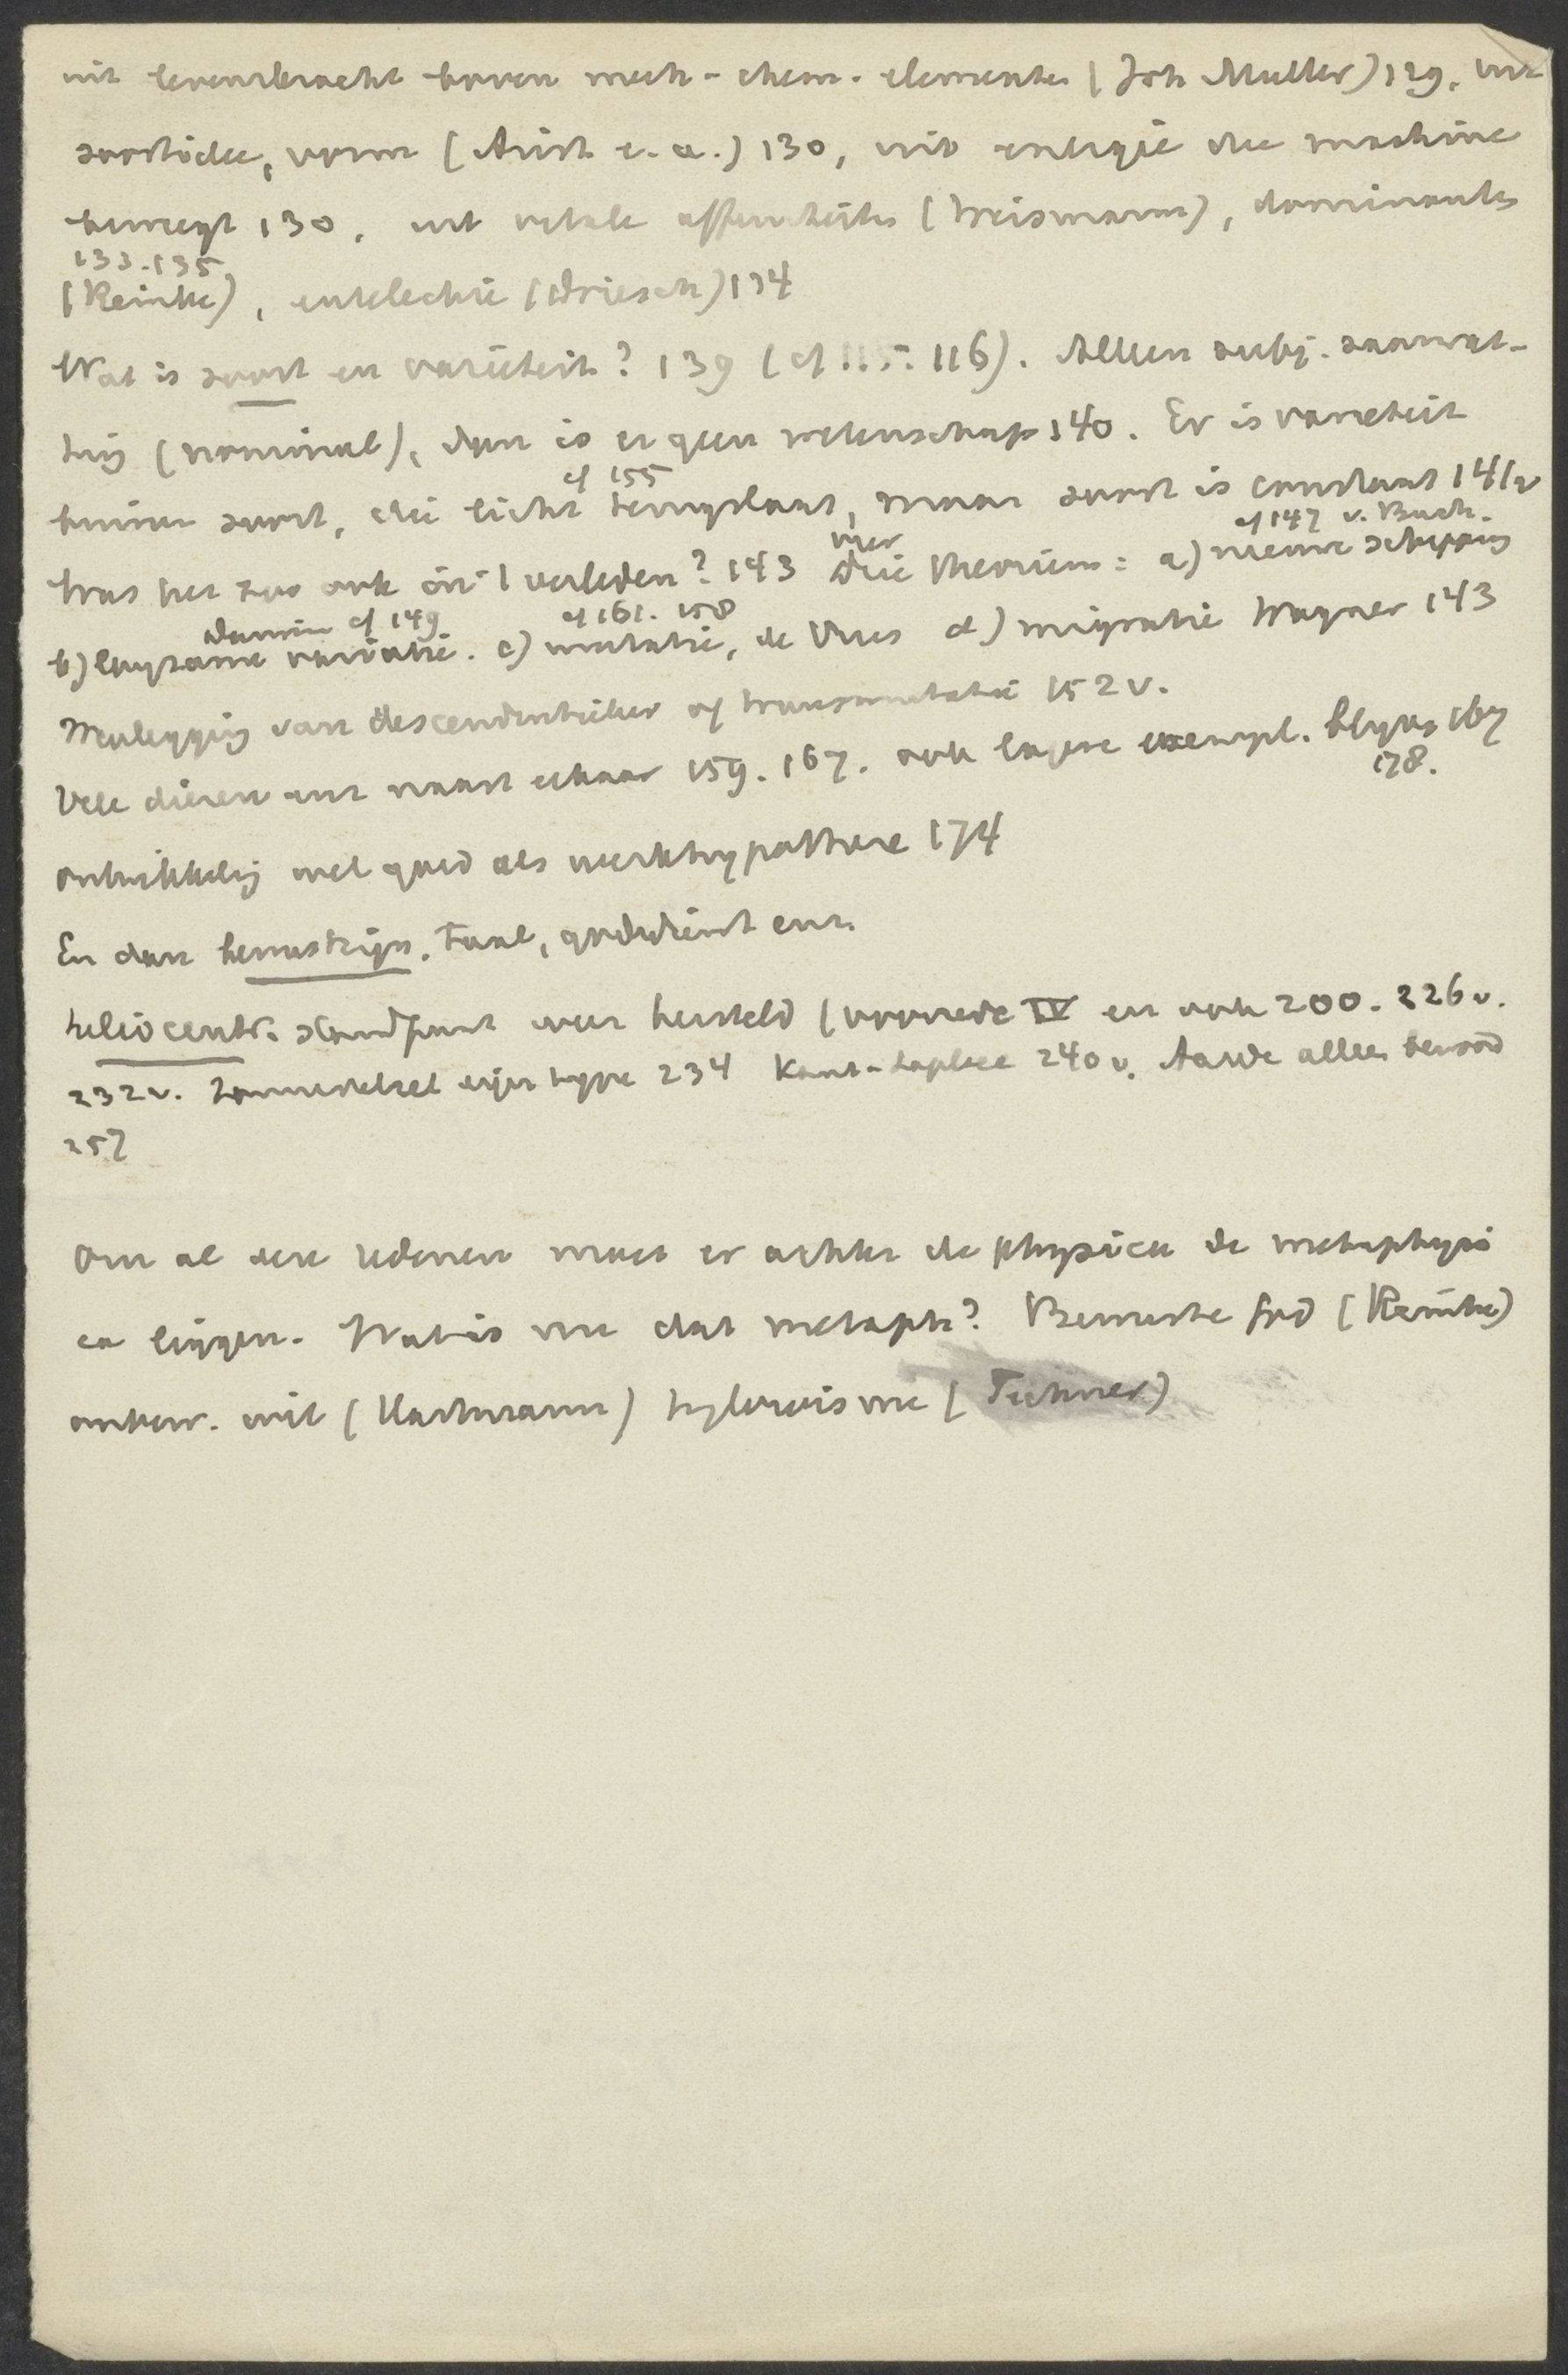 uit levenskracht boven mech-chem. elementen (Joh Muller) 129, uit
soortidee, vorm (Arist. e. a.) 130, uit energie die machine
beweegt 130, uit vitale affiniteiten (Weismann), dominanten
133.135
(Reinke), entelechie (Driesch) 134
Wat is soort en variëteit? 139 (cf 115. 116). Alleen subj. saamvat-
ting (nominal), dan is er geen wetenschap 140. Er is varieteit
cf 155
binnen soort, die licht terugslaat, maar soort is constant 141 v
cf 147 v. Buch.
vier
Was het zoo ook in 't verleden? 143 drie theorieen: a) nieuwe schepping
Darwin cf 149 cf 161. 158
b) langzame variatie. c) mutatie, de Vries d) migratie Wagner 143
Weerlegging van descendentieleer of transmutatie 152 v.
Vele dieren enz naast elkaar 159. 167. ook lagere exempl. blijven 167
178.
Ontwikkeling wel goed als werkhypothese 174
En dan bewustzijn, taal, godsdienst enz.
heliocentr. standpunt weer hersteld (voorrede IV en ook 200. 226 v.
232 v. Zonnestelsel eigen type 234 Kant-Laplace 240 v. Aarde alleen bewoond
257
Om al deze redenen moet er achter de physica de metaphysi
ca liggen. Wat is nu dat metaph? Bewuste God (Reinke)
onbew. wil (Hartmann) hylozoisme (Fechner)